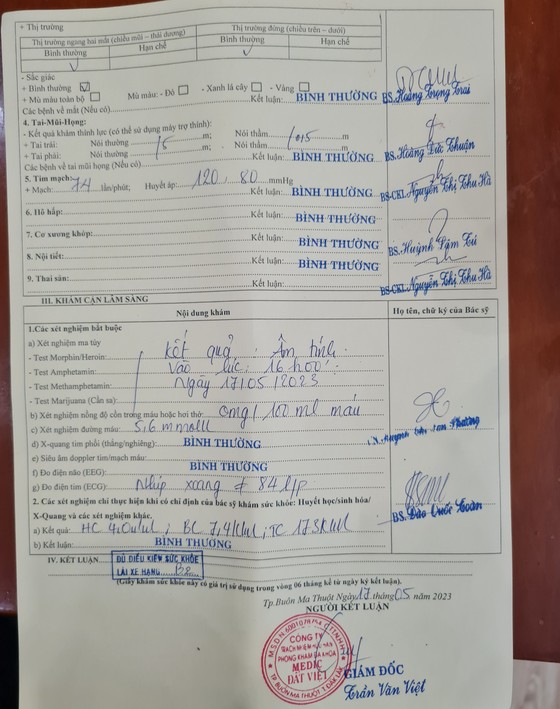 + Thị trường
Thị trường ngang hai mắt (chiều mũi – thái dương) Thị trường đứng (chiều trên – dưới)
Bình thường Hạn chế Bình thường Hạn chế
- Sắc giác
+ Bình thường + Mù màu toàn bộ Mù màu: - Đỏ - Xanh lá cây - Vàng
Các bệnh về mắt (Nếu có) Kết luận: BÌNH THƯỜNG
BS. Hoàng Trọng
4. Tai-Mũi-Họng:
- Kết quả khám thính lực (có thể sử dụng máy trợ thính):
+ Tai trái: Nói thường m; Nói thầm m
+ Tai phải: Nói thường 5 m; Nói thầm 0,5 m
Các bệnh về tai mũi họng (Nếu có) Kết luận: BÌNH THƯỜNG
BS. Hoàng Đức Thuận
5. Tim mạch:
+ Mạch: 74 lần/phút; Huyết áp: 120 / 80 mmHg
Kết luận: BÌNH THƯỜNG
BS-CKI. Nguyễn Thị Thu Hà
6. Hô hấp:
Kết luận: BÌNH THƯỜNG
7. Cơ xương khớp:
Kết luận: BÌNH THƯỜNG
BS. Huỳnh
8. Nội tiết:
Kết luận: BÌNH THƯỜNG
9. Thai sản:
Kết luận:
BS-CKI. Nguyễn Thị Thu Hà
III. KHÁM CẬN LÂM SÀNG
Nội dung khám Họ tên, chữ ký của Bác sỹ
1.Các xét nghiệm bắt buộc
a) Xét nghiệm ma túy
- Test Morphin/Heroin: Kết quả: Âm tính
- Test Amphetamin: Vào lúc: 16h00'
- Test Methamphetamin: Ngày 17/05/2023
- Test Marijuana (Cần sa):
b) Xét nghiệm nồng độ cồn trong máu hoặc hơi thở: 0mg/100ml máu
c) Xét nghiệm đường máu: 5,6 mmol/l
d) X-quang tim phổi (thẳng/nghiêng) BÌNH THƯỜNG
e) Siêu âm doppler tim/mạch máu:
f) Đo điện não (EEG) BÌNH THƯỜNG
g) Đo điện tim (ECG) Nhịp xoang 84 l/p
2. Các xét nghiệm chỉ thực hiện khi có chỉ định của bác sỹ khám sức khỏe: Huyết học/sinh hóa/
X-Quang và các xét nghiệm khác.
a) Kết quả: HC 4,0 ; BC 7,4 ; TC
b) Kết luận: BÌNH THƯỜNG
BS. Đào Quốc Hoàn
IV. KẾT LUẬN
ĐỦ ĐIỀU KIỆN SỨC KHỎE
LÁI XE HẠNG B2
(Giấy khám sức khỏe này có giá trị sử dụng trong vòng 06 tháng kể từ ngày ký kết luận).
Tp.Buôn Ma Thuột Ngày 17 tháng 05 năm 2023
NGƯỜI KẾT LUẬN
CÔNG TY
TRÁCH NHIỆM HỮU HẠN
PHÒNG KHÁM ĐA KHOA
MEDIC
ĐẤT VIỆT
TP. BUÔN MA THUỘT T. ĐẮK LẮK
GIÁM ĐỐC
Trần Văn Việt